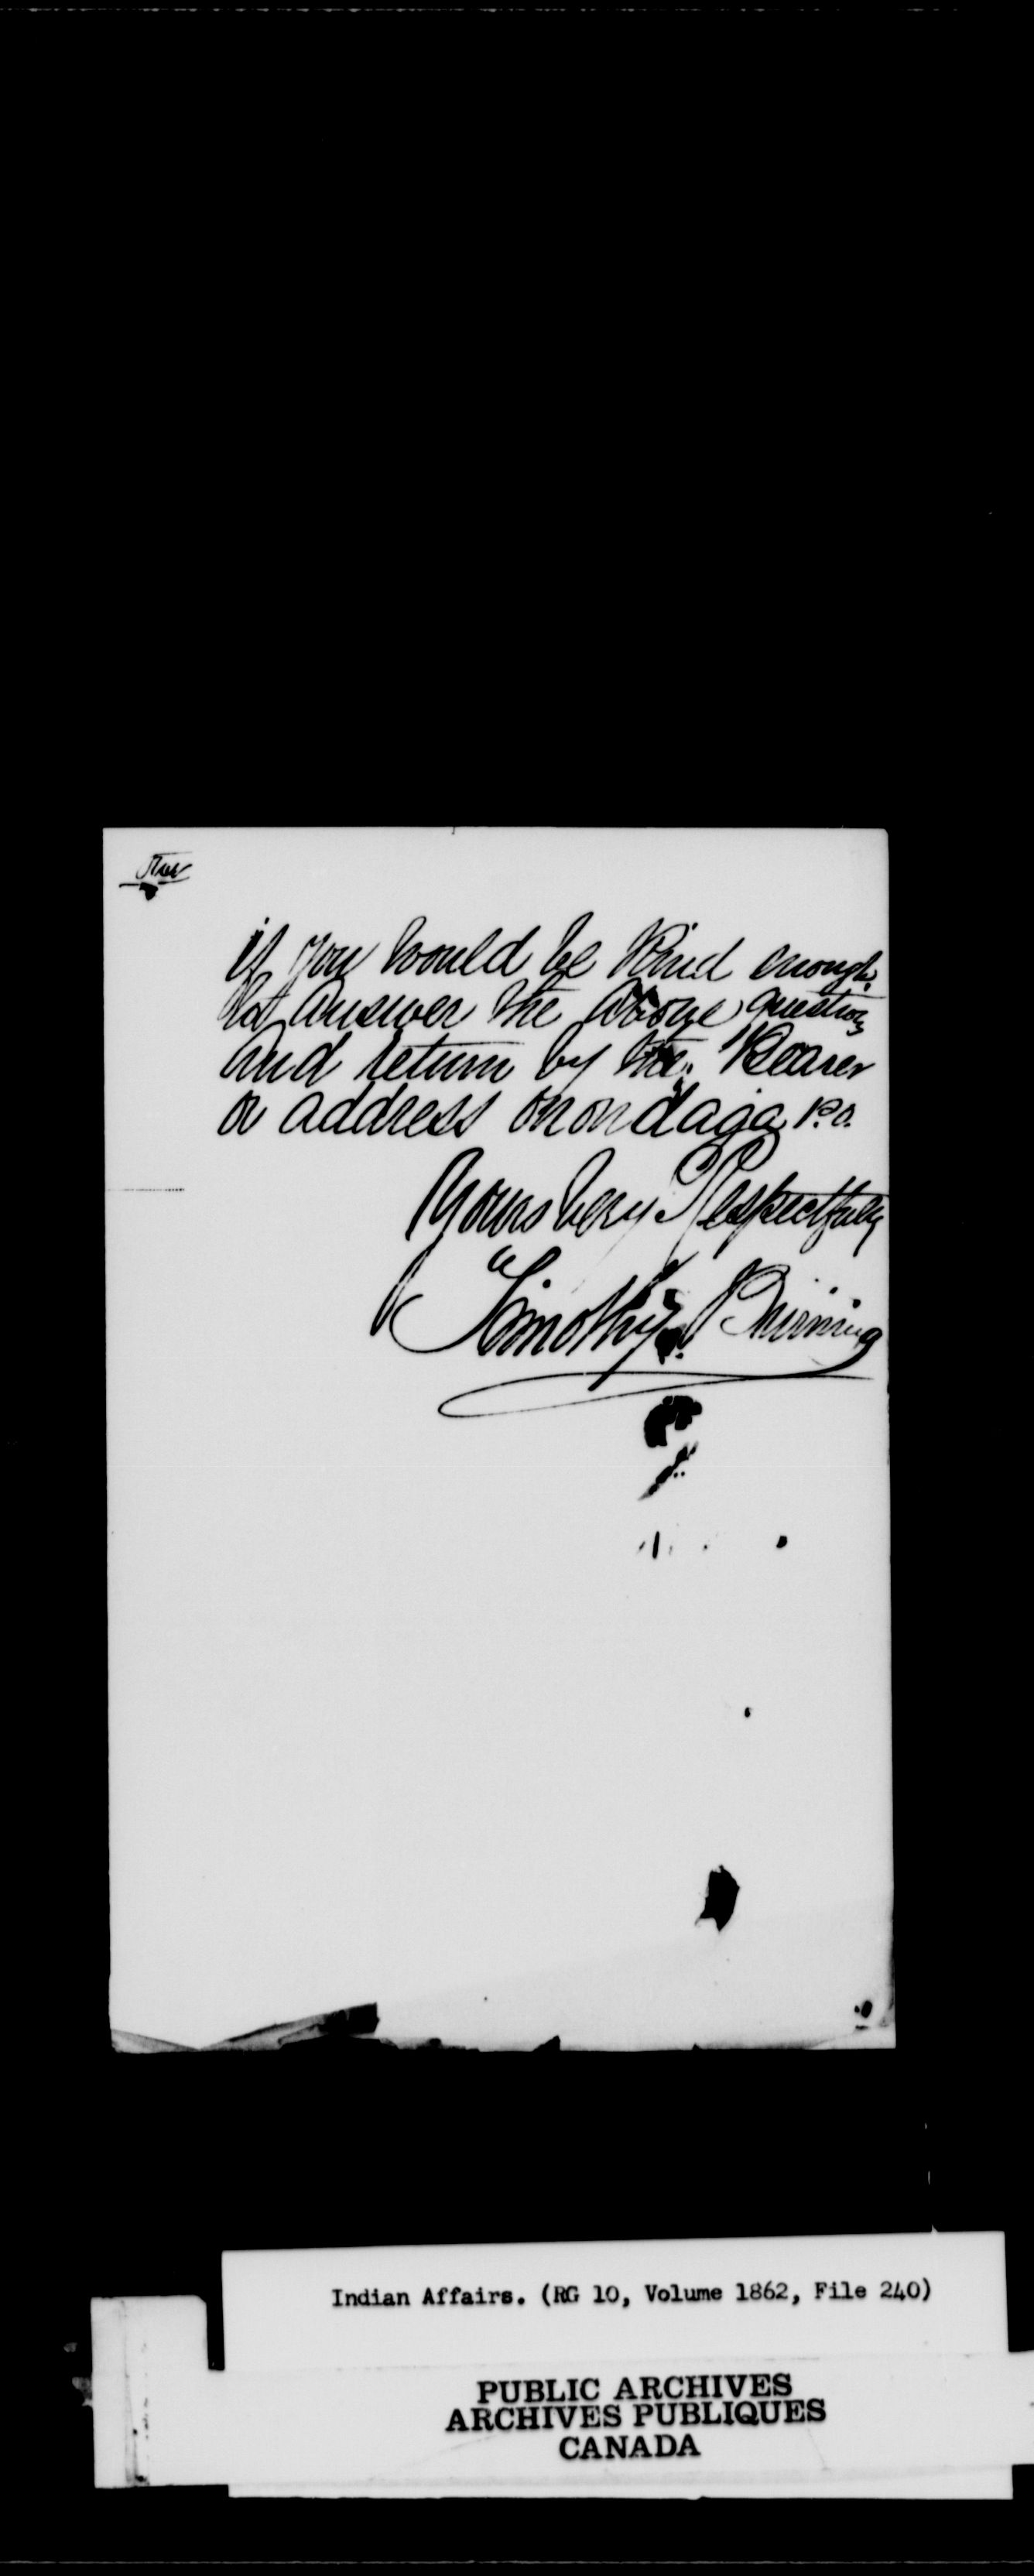 if you would be kind enough
to answer the above question
and return by the Bearer
or address Onondaga P.O.
Yours Very Respectfully
Timothy Burning
Indian Affairs. (RG 10, Volume 1862, File 240)
PUBLIC ARCHIVES
ARCHIVES PUBLIQUES
CANADA